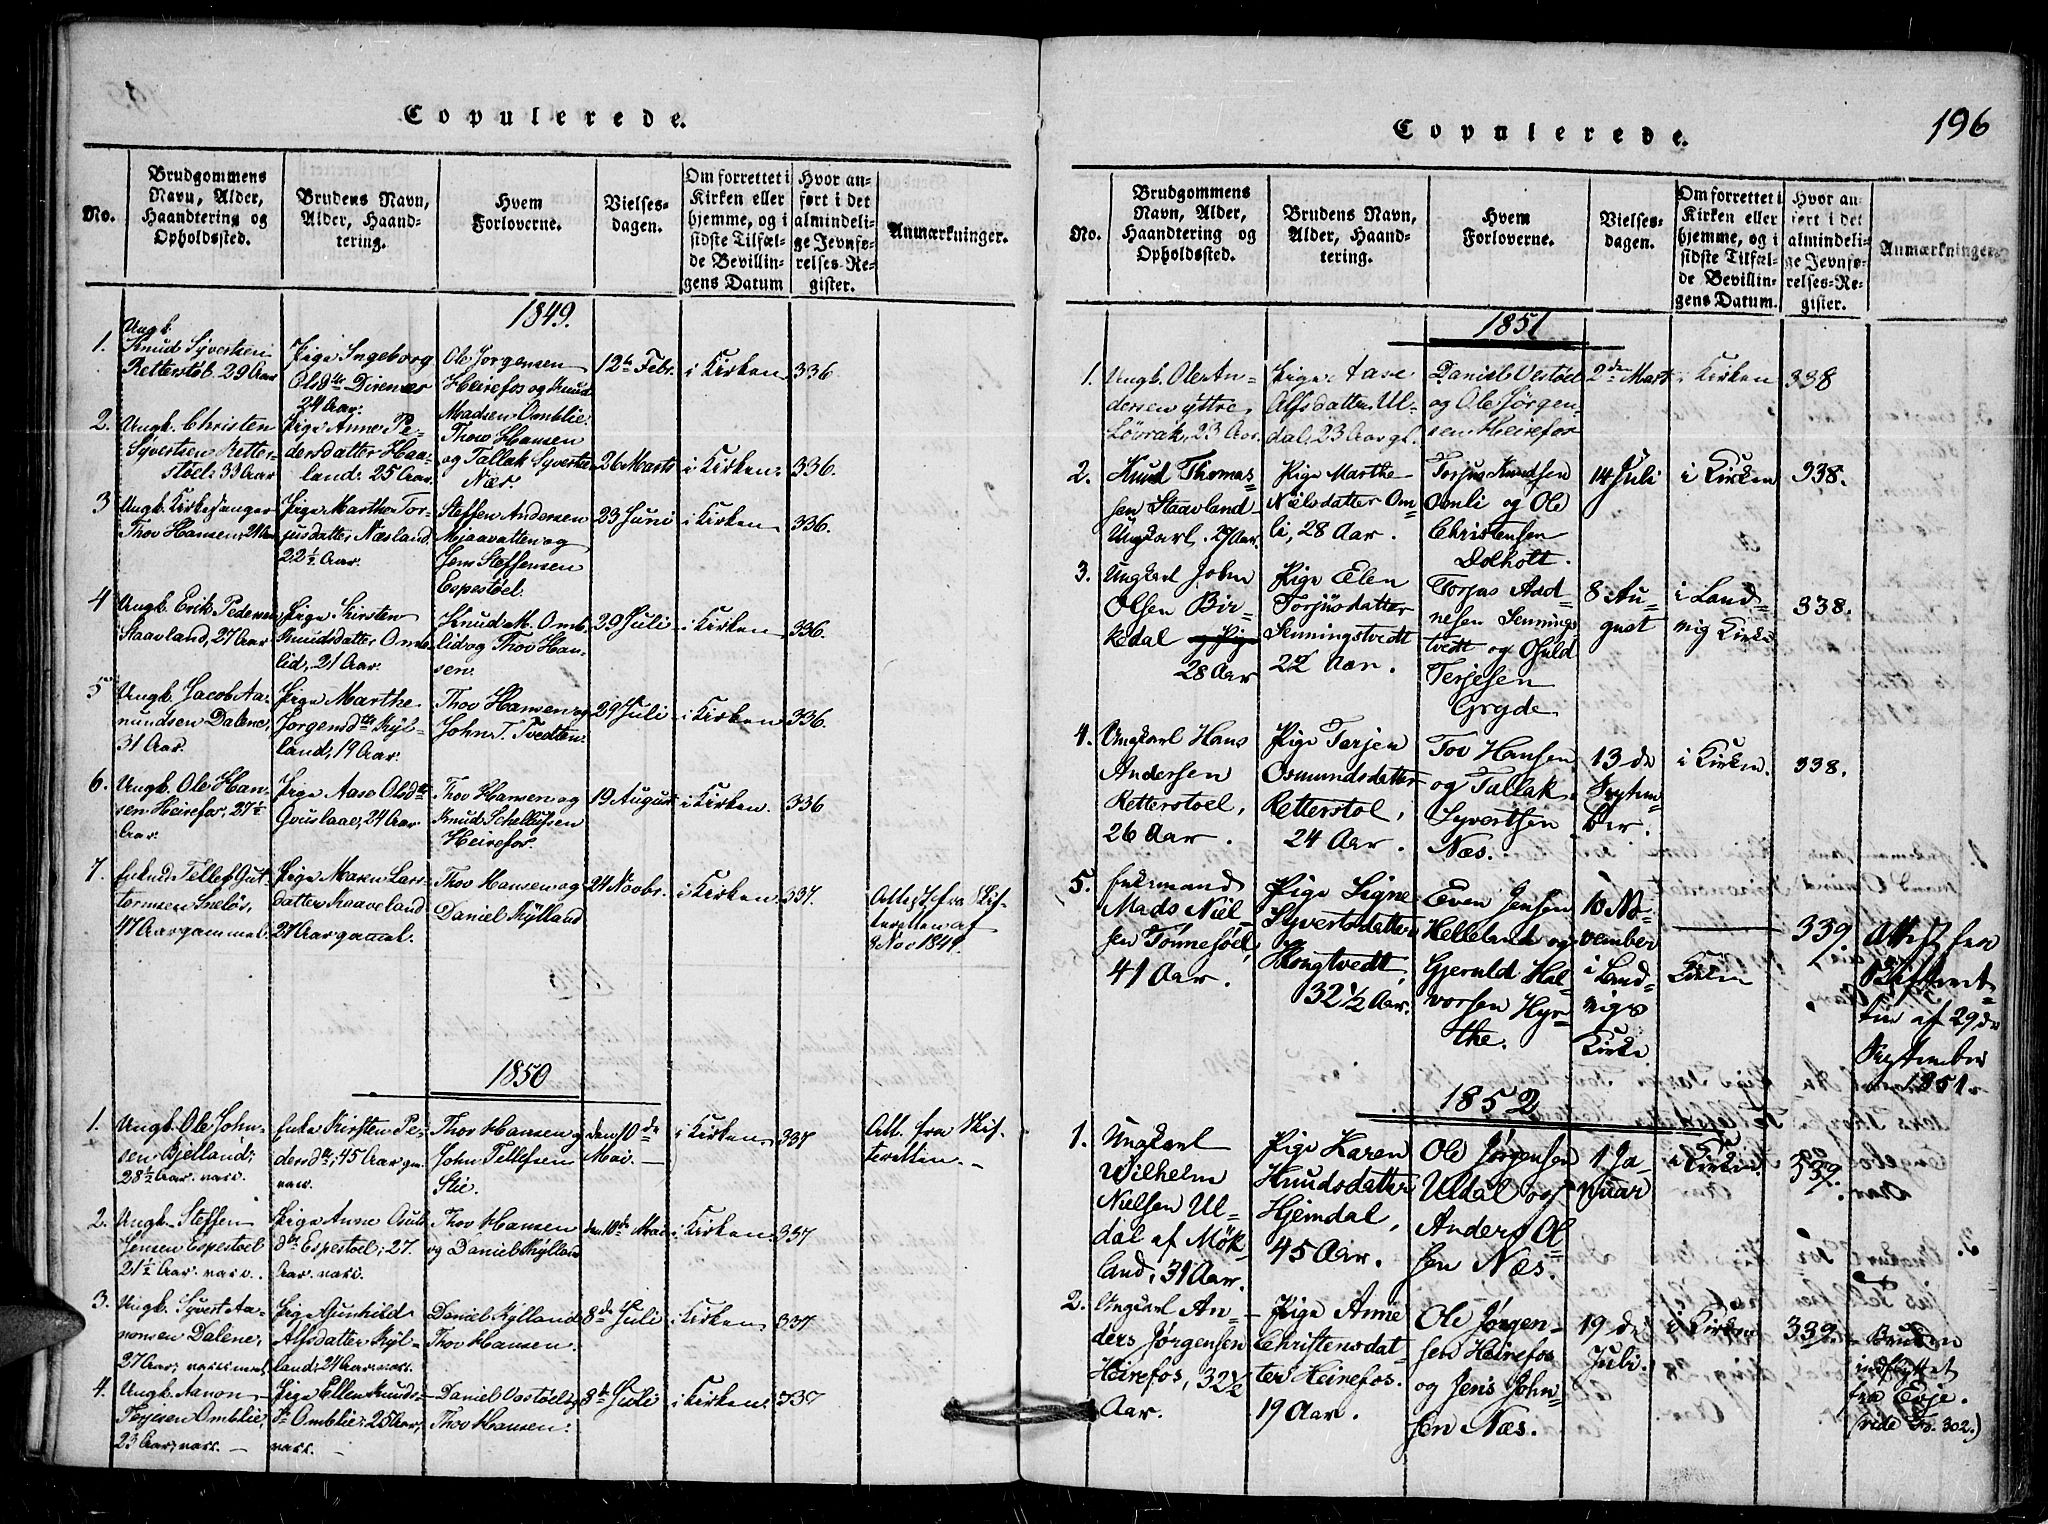 196
Copulerede.
No.
Brudgommens
Navn, Alder,
Haandtering og
Opholdssted.
Brudens Navn,
Alder, Haand-
tering.
Hvem
Forloverne.
Vielses-
dagen.
Om forrettet i
Kirken eller
hjemme, og i
sidste Tilfæl-
de Bevillin-
gens Datum
Hvor an-
ført i det
almindeli-
ge Jevnfø-
relses-Re-
gister.
Anmærkninger.
1849.
1.
Ungk.
Knud Syvertsen
Retterstöl. 29 Aar
Pige Ingeborg
Olsdtr Direnæs
24 Aar.
Ole Jorgensen
Heirefos og Knud
Madsen Omblie.
12te Febr.
i Kirken
336
2.
Ungk. Christen
Syvertsen Retter-
stoel. 33 Aar
Pige Anne Pe-
dersdatter Haa-
land. 25 Aar.
Thov Hansen
og Tallak Syvertsen
Næs.
26 Marts
i Kirken.
336.
3
Ungk. Kirkesanger
Thov Hansen,
Pige Marthe Tor-
jusdatter Næsland.
22½ Aar.
Steffen Andersen
Mjaavatten og
Jens Steffensen
Espestøel.
23 Juni
i Kirken
336.
4
Ungk. Erik Pedersen
Staavland, 27 Aar
Pige Kirsten
Knudsdatter Omb-
lid, 21 Aar.
Knud M. Omb-
lid og Thov Han-
sen.
29 Juli
i Kirken
336.
5
Ungk. Jacob Aa-
nundsen Dalene,
31 Aar.
Pige Marthe
Jørgensdtr Kyl-
land, 19 Aar.
Thov Hansen og
John T. Tvedten.
29 Juli
i Kirken
336.
6.
Ungk. Ole Han-
sen Heirefos, 27½
Aar.
Pige Aase Olsdtr
24 Aar
Thov Hansen og
Knud Schellefsen
Heirefos.
19 August
i Kirken.
336
7.
Enkmd Tellef Gut-
tormsen Sneløs,
47 Aar gammel.
Pige Maren Lars-
datter Kaaveland
27 Aar gamel.
Thov Hansen og
Daniel Kylland
24 Novbr.
i Kirken.
337.
Attest fra Skif-
teretten af
Nov 1849.
1850
1.
Ungk. Ole John-
sen Bjelland;
28½ Aar. vacc.
Enke Kirsten Pe-
dersdtr, 45 Aar gm.
vacc.
Thov Hansen og
John Tellefsen
Stie.
den 10de
Mai.
i Kirken
337
Att. fra Skif-
teretten.
2.
Ungk. Steffen
Jensen Espestoel
21½ Aar. vacc.
Pige Anne Auls-
dtr Espestoel; 27.
Aar. vacc.
Thov Hansen
og Daniel Kylland
den 10de Mai
i Kirken
337
3.
Ungk. Syvert Aa-
nonsen Dalene;
27 Aar;
Pige Gunhild
Alfsdatter Kyl-
land; 24 Aar. vacc.
Daniel Kylland
Thov Hansen.
8de Juli
i Kirken
337
4.
Ungk. Aanon
Terjesen Omblie;
23 Aar; vacc.
Pige Ellen Knuds-
dtr Omblie; 25 Aar,
vacc.
Daniel Vestöel og
Thov Hansen.
8de Juli
i Kirken
337
Copulerede.
No.
Brudgommens
Navn, Alder,
Haandtering og
Opholdssted.
Brudens Navn,
Alder, Haand-
tering.
Hvem
Forloverne.
Vielses-
dagen.
Om forrettet i
Kirken eller
hjemme, og i
sidste Tilfæl-
de Bevillin-
gens Datum.
Hvor an-
ført i det
almindeli-
ge Jevnfø-
relses-Re-
gister.
Anmærkninger.
1851
1.
Ungk. Ole An-
dersen yttre
Lövrak, 23 Aar.
Pige Aase
Alfsdatter Ul-
dal, 23 Aar gl.
Daniel Vestøel
og Ole Jörgen-
sen Heirefos
2den Mart
i Kirken
338
2.
Knud Thomas-
sen Staavland
Ungkarl. 27 Aar.
Pige Marthe
Nielsdatter Om-
li, 28 Aar.
Torjus Knudsen
Omli og Ole
Christensen
Dolholt.
14 Juli
i Kirken
338.
3.
Ungkarl John
Olsen Bir-
kedal
28 Aar
Pige Elen
Torjusdatter
Senningstvedt
22 Aar.
Torjus Aad-
nesen Sennings-
tvedt og Osuld
Terjesen
Gryde
8 Au-
gust
i Land-
vig Kirke
338.
4.
Ungkarl Hans
Andersen
Retterstoel,
26 Aar.
Pige Torjen
Osmundsdatter
Retterstol,
24 Aar.
Tov Hansen
og Tallak
Syvertsen
Næs.
13 de
Septem-
ber.
i Kirken.
338.
5.
Enkemand
Mads Niel-
sen Tönnesöel,
41 Aar.
Pige Signe
Syvertsdatter
Rongtvedt,
32½ Aar.
Even Jensen
Helleland og
Gjeruld Hal-
vorsen Hyr-
the.
10 No-
vember
i Land-
vigs
Kirke
339.
Attest fra
Skifteret-
ten af 29 de
September
1851.
1852
1.
Ungkarl
Wilhelm
Nielsen Ul-
dal af Møk-
land, 31 Aar.
Pige Karen
Knudsdatter
Hjemdal,
45 Aar.
Ole Jørgensen
Uldal og
Anders Ol-
sen Næs.
1 Ja-
nuar
i Kirken.
339.
2.
Ungkarl An-
ders Jørgensen
Heirefos, 32½
Aar.
Pige Anne
Christensdat-
ter Heirefos.
19 Aar.
Ole Jørgen-
sen Heirefos
og Jens John-
sen Næs.
19 de
Juli.
i Kirken
339.
Bruden
indflyttet
fra Evje.
(vide Fr. 302.)